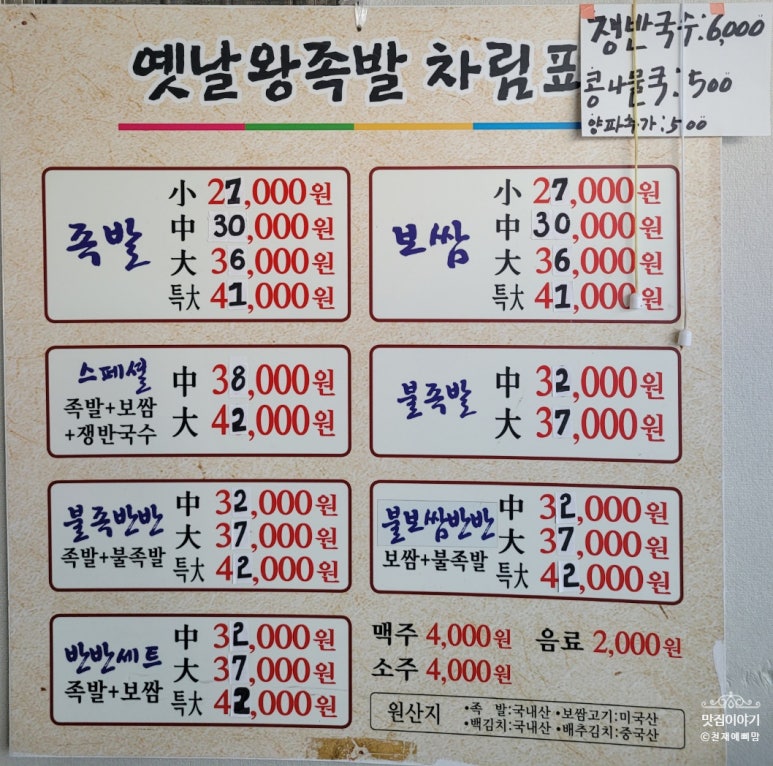 옛날왕족발 차림표
쟁반국수:6,000
콩나물국:500
양파추가:500
족발
小 27,000원
中 30,000원
大 36,000원
특大 41,000원
보쌈
小 27,000원
中 30,000원
大 36,000원
특大 41,000원
스페셜
족발+보쌈
+쟁반국수
中 38,000원
大 42,000원
불족발
中 32,000원
大 37,000원
불족반반
족발+불족발
中 32,000원
大 37,000원
특大 42,000원
불보쌈반반
보쌈+불족발
中 32,000원
大 37,000원
특大 42,000원
반반세트
족발+보쌈
中 32,000원
大 37,000원
특大 42,000원
맥주 4,000원 음료 2,000원
소주 4,000원
원산지
•족 발:국내산 •보쌈고기:미국산
•백김치:국내산 •배추김치:중국산
맛집이야기
©천재예삐맘